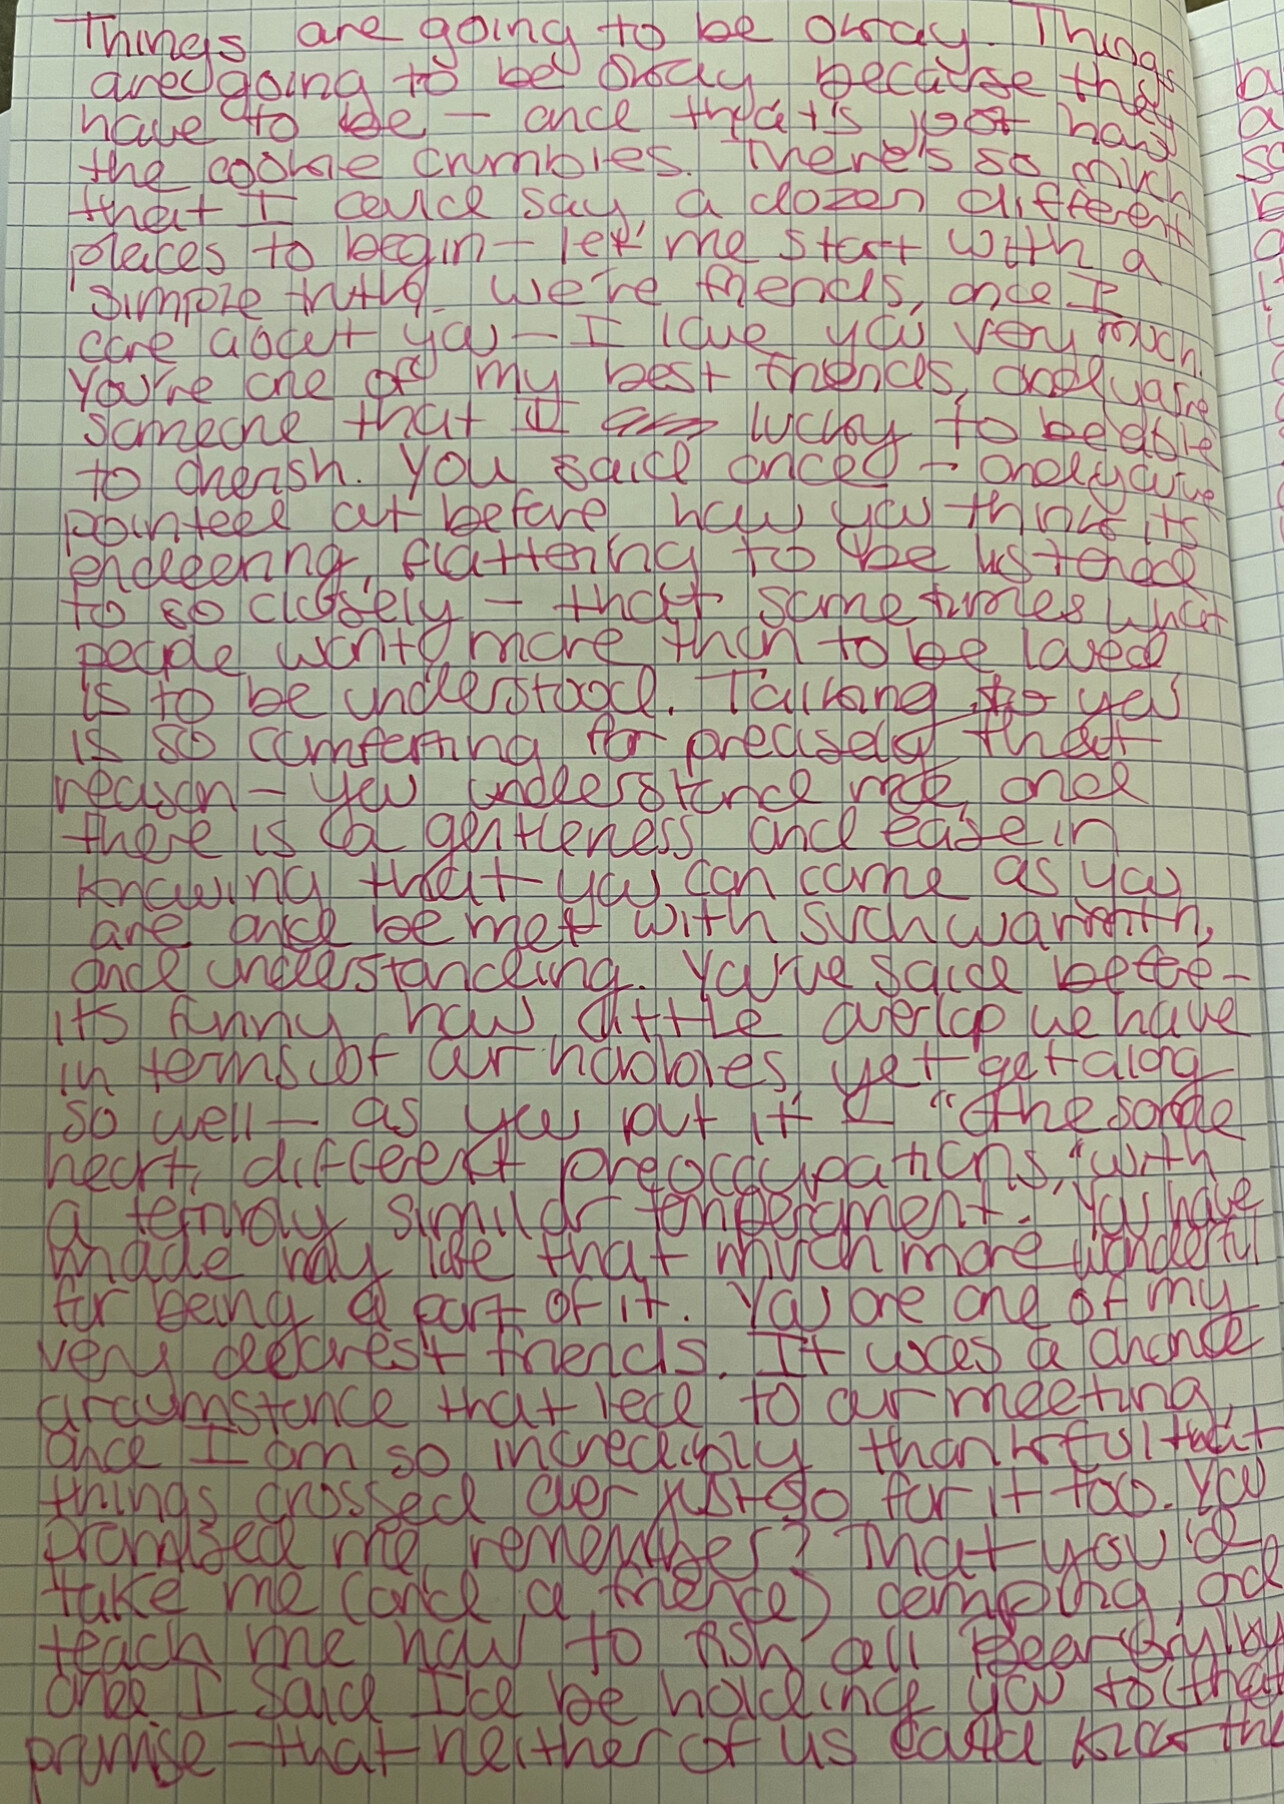 Things are going to be okay. Things
are going to be okay because they
have to be – and that's just how
the cookie crumbles. There's so much
that I could say, a dozen different
places to begin – let me start with a
simple truth. We're friends, and I
care about you – I love you very much.
You're one of my best friends, and you're
someone that I lucky to be able
to cherish. You said once – and you've
pointed at before how you think its
endeering, flattering to be listened
to so closely – that sometimes what
people want more than to be loved
is to be understood. Talking to you
is so comforting for precisely that
reason – you understand me, and
there is a gentleness and ease in
knowing that you can come as you
are and be met with such warmth,
and understanding. You've said before –
its funny how little overlap we have
in terms of our hobbies, yet get along
so well – as you put it – "the same
heart, different preoccupations," with
a terribly similar temperament. You have
made my life that much more wonderful
for being a part of it. You are one of my
very dearest friends. It was a chance
circumstance that led to our meeting,
and I am so incredibly thankful that
things crossed over just so for it too. You
promised me, remember? That you'd
take me (and a friend) camping, and
teach me how to fish all
and I said I'd be holding you to that
promise – that neither of us could know the